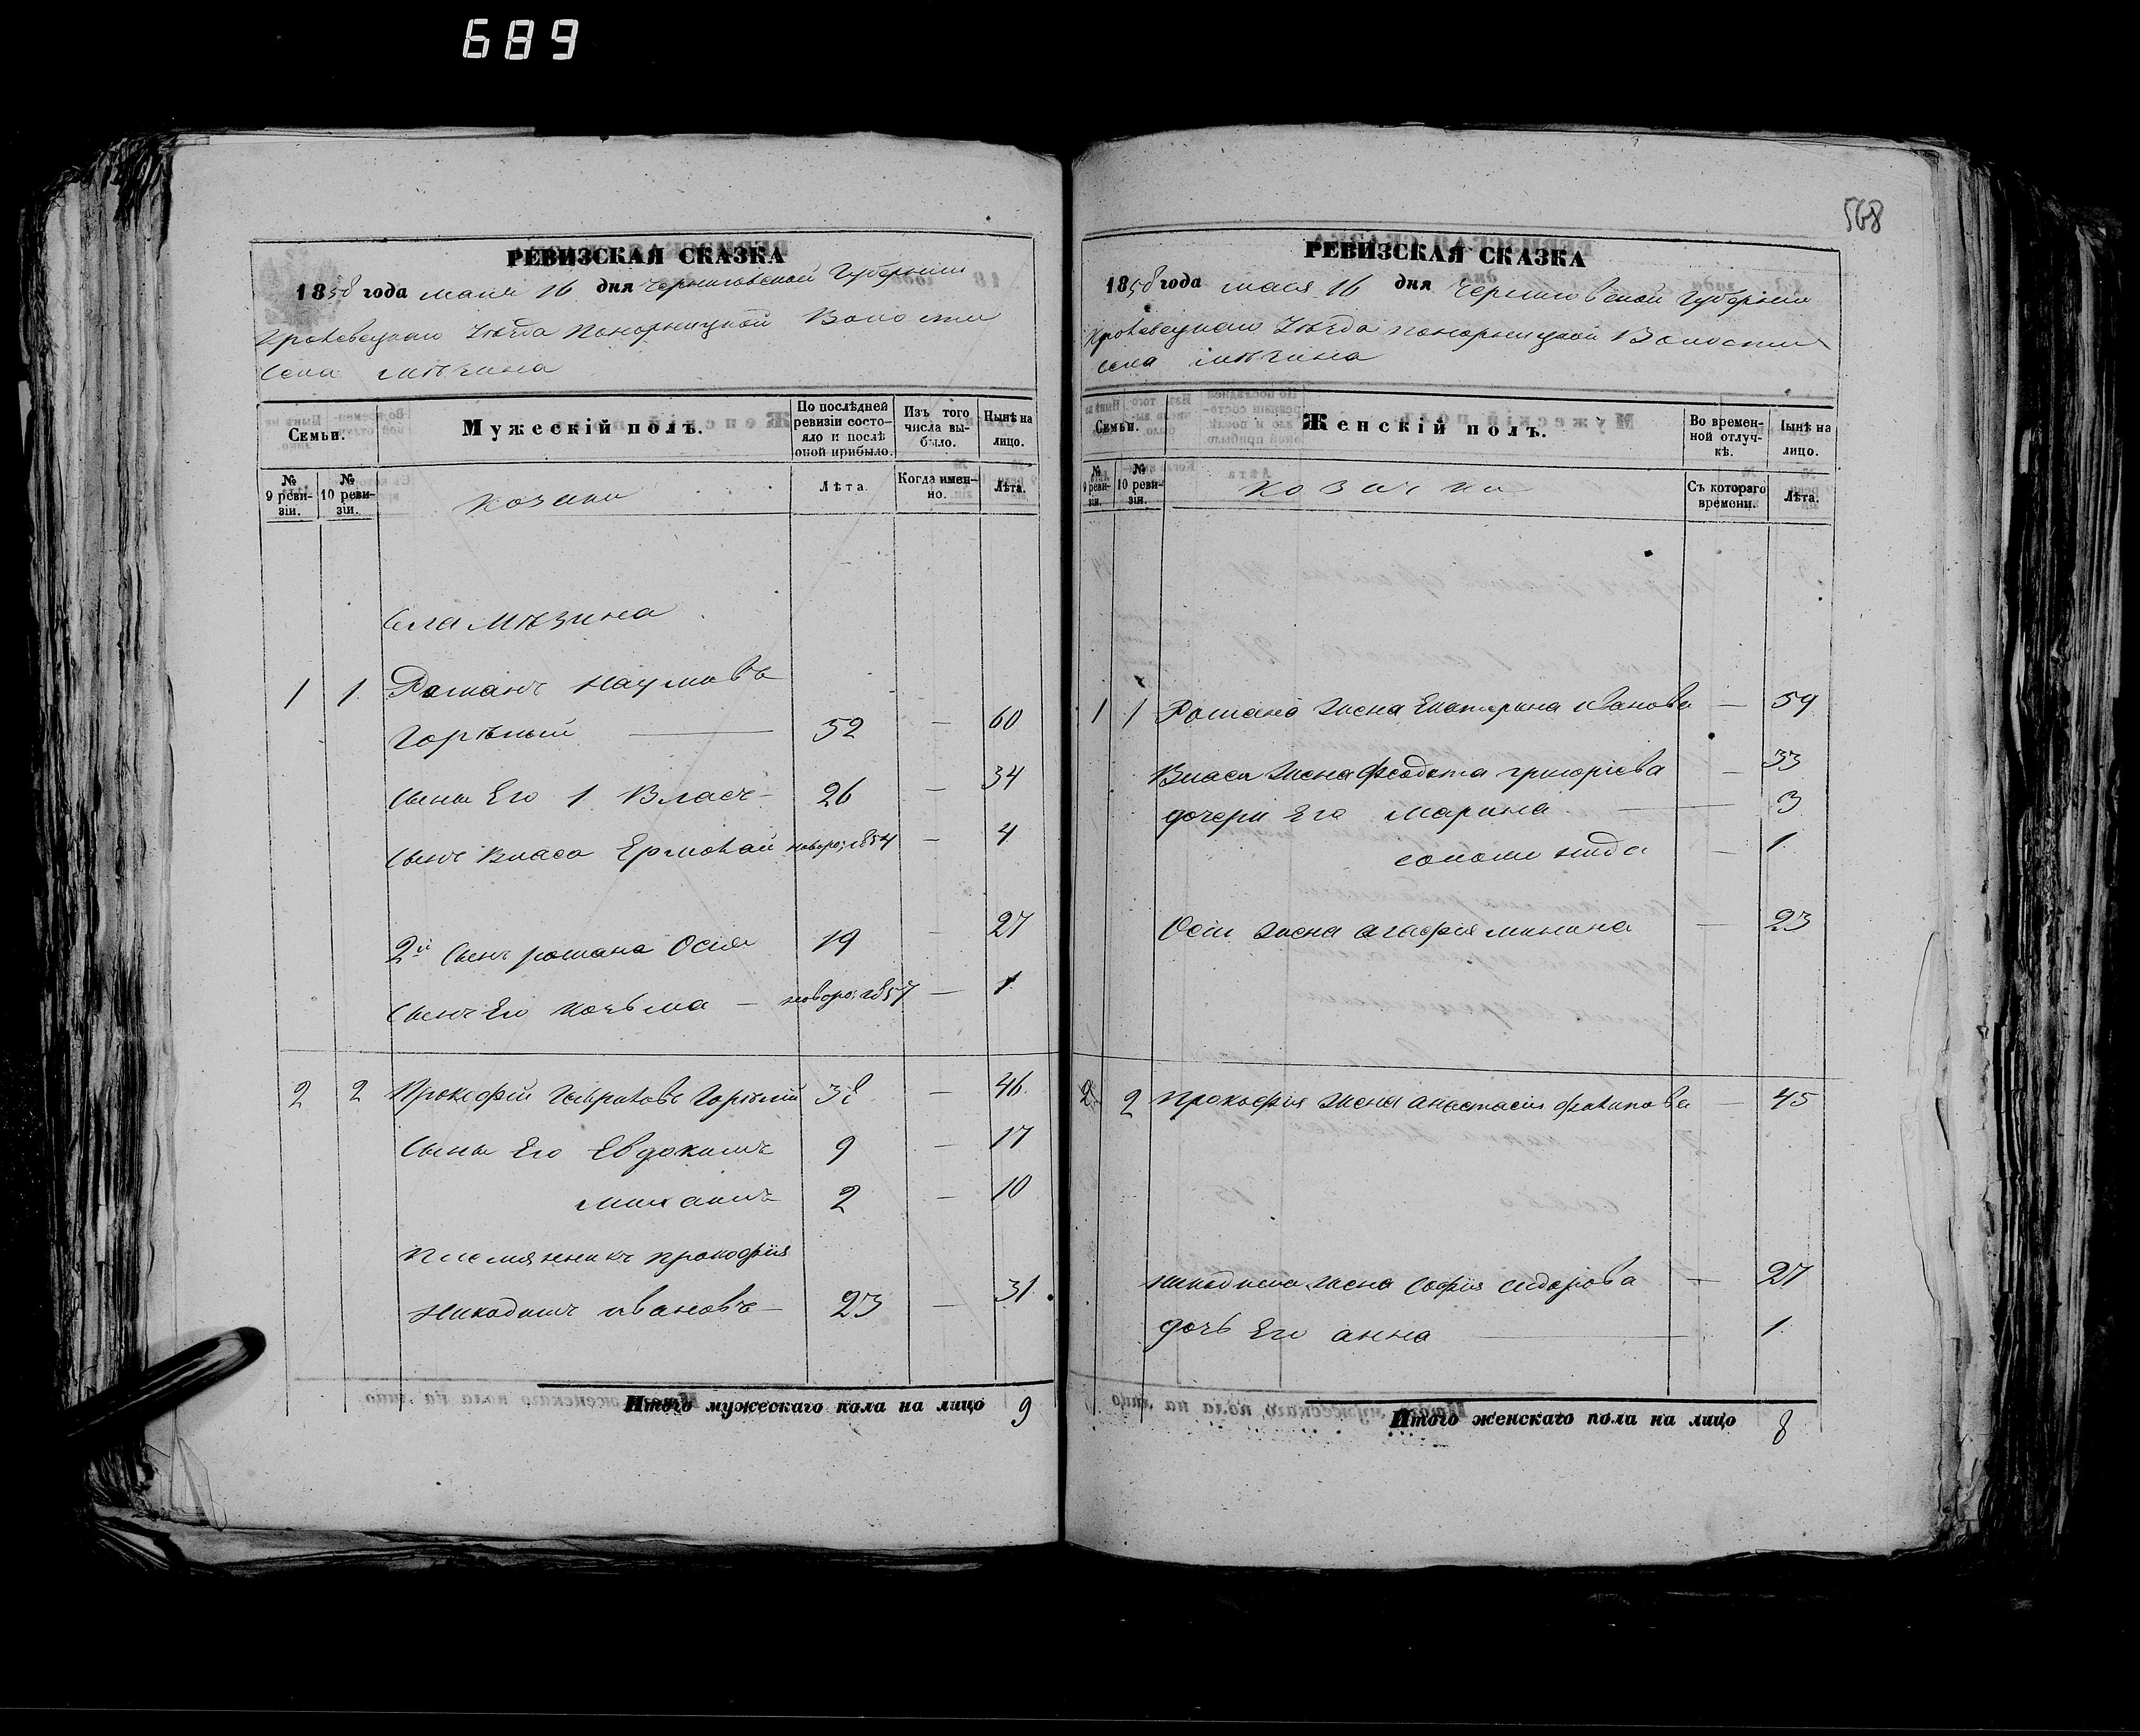 689
568
РЕВИЗСКАЯ СКАЗКА
1858 года маия 16 дня Черниговской Губерніи
Кролевецкаго Уѣзда Понорницкой Волости
Села Мѣзина
Семьи.
Мужескій полъ.
По послѣдней ревизіи состояло и послѣ оной прибыло.
Изъ того числа выбыло.
Нынѣ на лицо.
№ 9 ревизіи.
№ 10 ревизіи.
Козаки
Лѣта.
Когда именно.
Лѣта.
Села Мѣзина
1 1 Романъ Наумовъ
Горѣлый — 52 — 60
Сыны Его 1 Власъ - 26 — 34
Сынъ Власа Ермолай новоро: 1854 — 4
2й Сынъ Романа Осія 19 — 27
Сынъ Его Козьма — новоро: 1857 — 1
2 2 Прокофій Гавриловъ Горѣлый 38 — 46
Сыны Его Евдокимъ 9 — 17
Михаилъ 2 — 10
Племянникъ Прокофія
Никодимъ Ивановъ — 23 — 31
Итого мужескаго пола на лицо 9
РЕВИЗСКАЯ СКАЗКА
1858 года маия 16 дня Черниговской Губерніи
Кролевецкаго Уѣзда Понорницкой Волости
Села Мѣзина
Семьи.
Женскій полъ.
Во временной отлучкѣ.
Нынѣ на лицо.
№ 9 ревизіи.
№ 10 ревизіи.
Козачки
Съ котораго времени.
Лѣта.
1 1 Романа жена Екатерина Иванова — 59
Власа жена Феодота Григоріева — 33
дочери Его Марина — 3
Соломонида — 1
Осіи жена Агафія Минина — 23
2 2 Прокофія жена Анастасія Филипова — 45
Никодима жена Софія Сидорова — 27
дочь Его Анна — 1
Итого женскаго пола на лицо 8